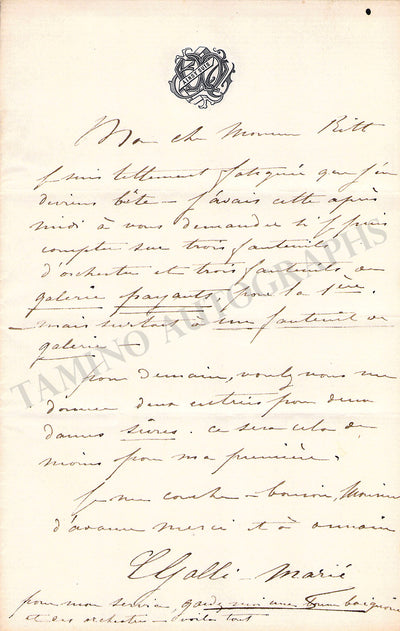 Mon cher Monsieur Ritt
Je suis tellement fatiguée que j'en
deviens bête – j'avais cette après
midi à vous demander si je puis
compter sur trois fauteuils
d'orchestre et trois fauteuils de
galerie payants pour la 1ère.
– mais surtout à une fauteuil de
galerie –
pour demain, voulez vous me
donner deux entrées pour deux
dames sûres. ce sera cela de
moins pour ma première.
Je me couche – bonsoir, Monsieur
d'avance merci et à demain
Galli-Marié
pour mon service, gardez moi une baignoire
et des orchestre – voilà tout
TAMINO AUTOGRAPHS